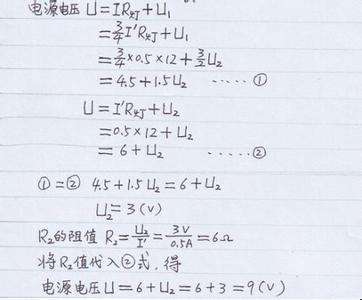 电源电压 U=IR灯+U₁
=¾I'R灯+U₁
=¾×0.5×12+3/2U₂
=4.5+1.5U₂ ······①
U=I'R灯+U₂
=0.5×12+U₂
=6+U₂ ······②
①=② 4.5+1.5U₂=6+U₂
U₂=3(V)
R₂的阻值 R₂=U₂/I'=3V/0.5A=6Ω
将R₂值代入②式,得
电源电压U=6+U₂=6+3=9(V)